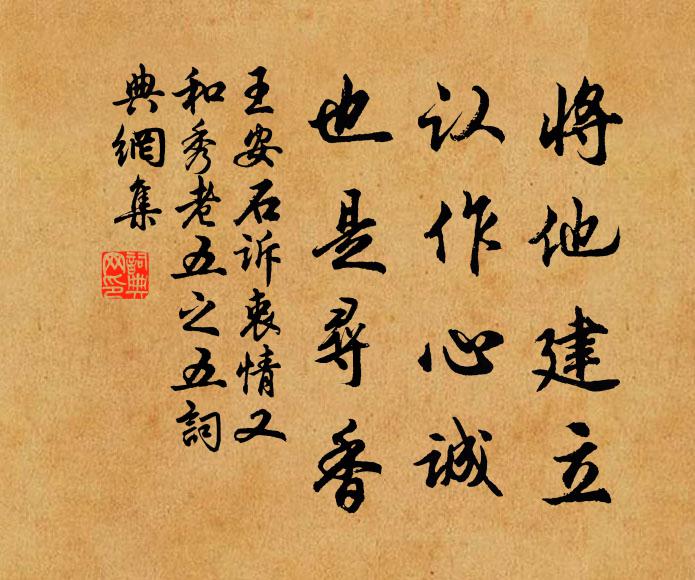 将他建立
认作心诚
也是寻香
王安石诉衷情又
和秀老五之五詞
典網集
詞典
网印